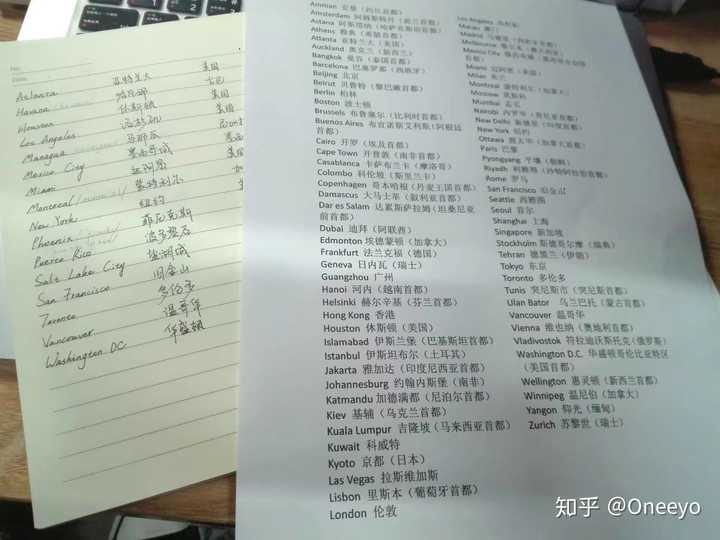 No.
Date
Atlanta 亚特兰大 美国
Havana 哈瓦那 古巴
Houston 休斯顿 美国
Los Angeles 洛杉矶 美国
Managua 马那瓜
Mexico City 墨西哥城
Miami 迈阿密
Montreal 蒙特利尔
New York 纽约
Phoenix 菲尼克斯
Puerto Rico 波多黎各
Salt Lake City 盐湖城
San Francisco 旧金山
Toronto 多伦多
Vancouver 温哥华
Washington DC 华盛顿
Amman 安曼（约旦首都）
Amsterdam 阿姆斯特丹（荷兰首都）
Astana 阿斯塔纳（哈萨克斯坦首都）
Athens 雅典（希腊首都）
Atlanta 亚特兰大（美国）
Auckland 奥克兰（新西兰）
Bangkok 曼谷（泰国首都）
Barcelona 巴塞罗那（西班牙）
Beijing 北京
Beirut 贝鲁特（黎巴嫩首都）
Berlin 柏林
Boston 波士顿
Brussels 布鲁塞尔（比利时首都）
Buenos Aires 布宜诺斯艾利斯（阿根廷
首都）
Cairo 开罗（埃及首都）
Cape Town 开普敦（南非首都）
Casablanca 卡萨布兰卡（摩洛哥）
Colombo 科伦坡（斯里兰卡）
Copenhagen 哥本哈根（丹麦王国首都）
Damascus 大马士革（叙利亚首都）
Dar es Salam 达累斯萨拉姆（坦桑尼亚
前首都）
Dubai 迪拜（阿联酋）
Edmonton 埃德蒙顿（加拿大）
Frankfurt 法兰克福（德国）
Geneva 日内瓦（瑞士）
Guangzhou 广州
Hanoi 河内（越南首都）
Helsinki 赫尔辛基（芬兰首都）
Hong Kong 香港
Houston 休斯顿（美国）
Islamabad 伊斯兰堡（巴基斯坦首都）
Istanbul 伊斯坦布尔（土耳其）
Jakarta 雅加达（印度尼西亚首都）
Johannesburg 约翰内斯堡（南非）
Katmandu 加德满都（尼泊尔首都）
Kiev 基辅（乌克兰首都）
Kuala Lumpur 吉隆坡（马来西亚首都）
Kuwait 科威特
Kyoto 京都（日本）
Las Vegas 拉斯维加斯
Lisbon 里斯本（葡萄牙首都）
London 伦敦
Los Angeles 洛杉矶
Macau 澳门
Madrid 马德里（西班牙首都）
Melbourne 墨尔本（澳大利亚）
Mexico City 墨西哥城（墨西哥合众国
首都）
Miami 迈阿密（美国）
Milan 米兰
Montreal 蒙特利尔（加拿大）
Moscow 莫斯科
Mumbai 孟买
Nairobi 内罗毕（肯尼亚首都）
New Delhi 新德里（印度首都）
New York 纽约
Ottawa 渥太华（加拿大首都）
Paris 巴黎
Pyongyang 平壤（朝鲜）
Riyadh 利雅得（沙特阿拉伯首都）
Rome 罗马
San Francisco 旧金山
Seattle 西雅图
Seoul 首尔
Shanghai 上海
Singapore 新加坡
Stockholm 斯德哥尔摩（瑞典）
Tehran 德黑兰（伊朗）
Tokyo 东京
Toronto 多伦多
Tunis 突尼斯市（突尼斯首都）
Ulan Bator 乌兰巴托（蒙古首都）
Vancouver 温哥华
Vienna 维也纳（奥地利首都）
Vladivostok 符拉迪沃斯托克（俄罗斯）
Washington D.C. 华盛顿哥伦比亚特区
（美国首都）
Wellington 惠灵顿（新西兰首都）
Winnipeg 温尼伯（加拿大）
Yangon 仰光（缅甸）
Zurich 苏黎世（瑞士）
知乎 @Oneeyo